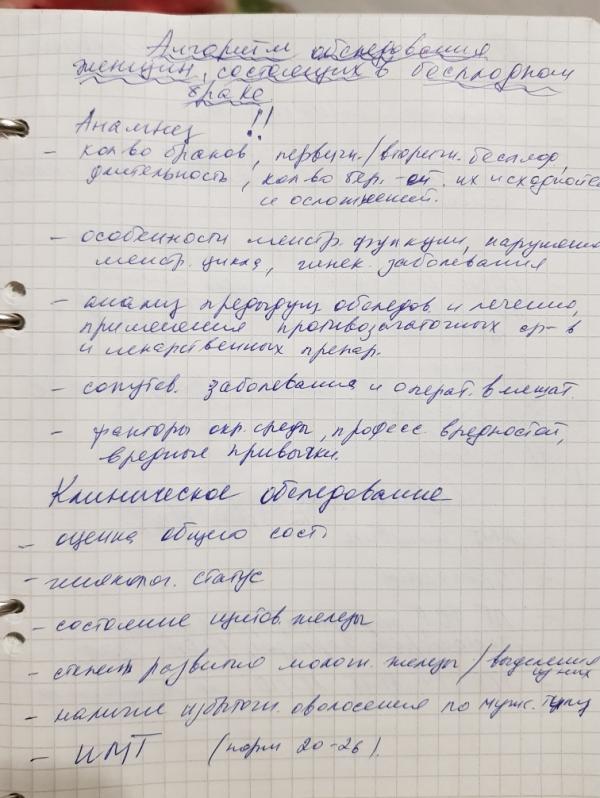 Алгоритм обследования
женщин, состоящих в бесплодном
браке
!!
Анамнез
- кол-во браков, первичн./вторичн. бесплод,
длительность, кол-во бер-ей их исходностей
и осложнений.
- особенности менстр. функции, нарушения
менстр. цикла, гинек. заболевания
- анализ предыдущ. обследов. и лечению,
применения противозачаточных ср-в
и лекарственных препар.
- сопутсв. заболевания и операт. вмешат.
- факторы окр. среды, професс. вредностей,
вредные привычки.
Клиническое обследование
- оценка общего сост.
- гинеколог. статус
- состояние щитов. железы
- степень развития молочн. железы / выделения
из них
- наличие избыточн. оволосения по муж. типу
- ИМТ (норм 20-26).